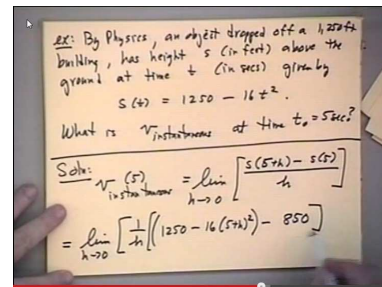 ex: By Physics, an object dropped off a 1,250 ft
building, has height s (in feet) above the
ground at time t (in secs) given by
s(t) = 1250 - 16t².
What is v instantaneous at time t₀ = 5 sec?
Soln: v instantaneous (5) = lim h→0 [ s(5+h) - s(5) / h ]
= lim h→0 [ 1/h [ (1250 - 16(5+h)²) - 850 ]